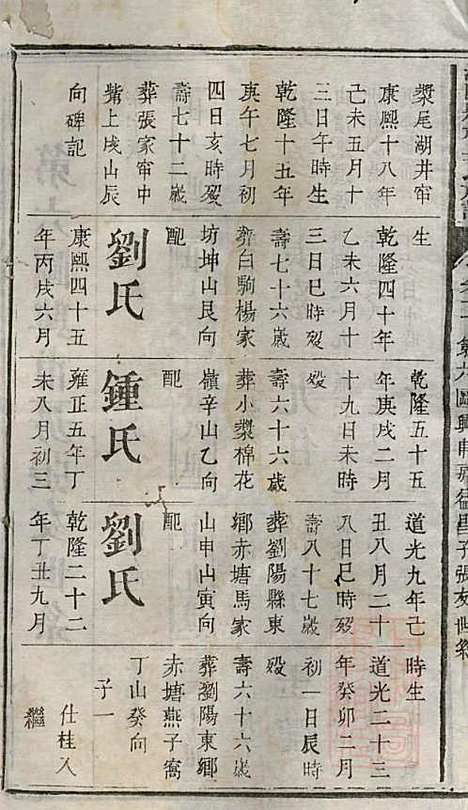 槳尾湖井窜
康熙十八年
己未五月十
三日午時生
乾隆十五年
庚午七月初
四日亥時殁
壽七十二歲
葬張家窜中
嘴上戌山辰
向碑記
生
乾隆四十年
乙未六月十
三日巳時殁
壽七十六歲
葬白駒楊家
坊坤山艮向
配
劉氏
康熙四十五
年丙戌六月
乾隆五十五
年庚戌二月
十九日未時
殁
壽六十六歲
葬小槳棉花
嶺辛山乙向
配
鍾氏
雍正五年丁
未八月初三
道光九年己
丑八月二十
八日巳時殁
壽八十七歲
葬劉陽縣東
鄉赤塘馬家
山申山寅向
配
劉氏
乾隆二十二
年丁丑九月
時生
道光二十三
年癸卯二月
初一日辰時
殁
壽六十六歲
葬劉陽東鄉
赤塘燕子窩
丁山癸向
子一
仕桂入
繼